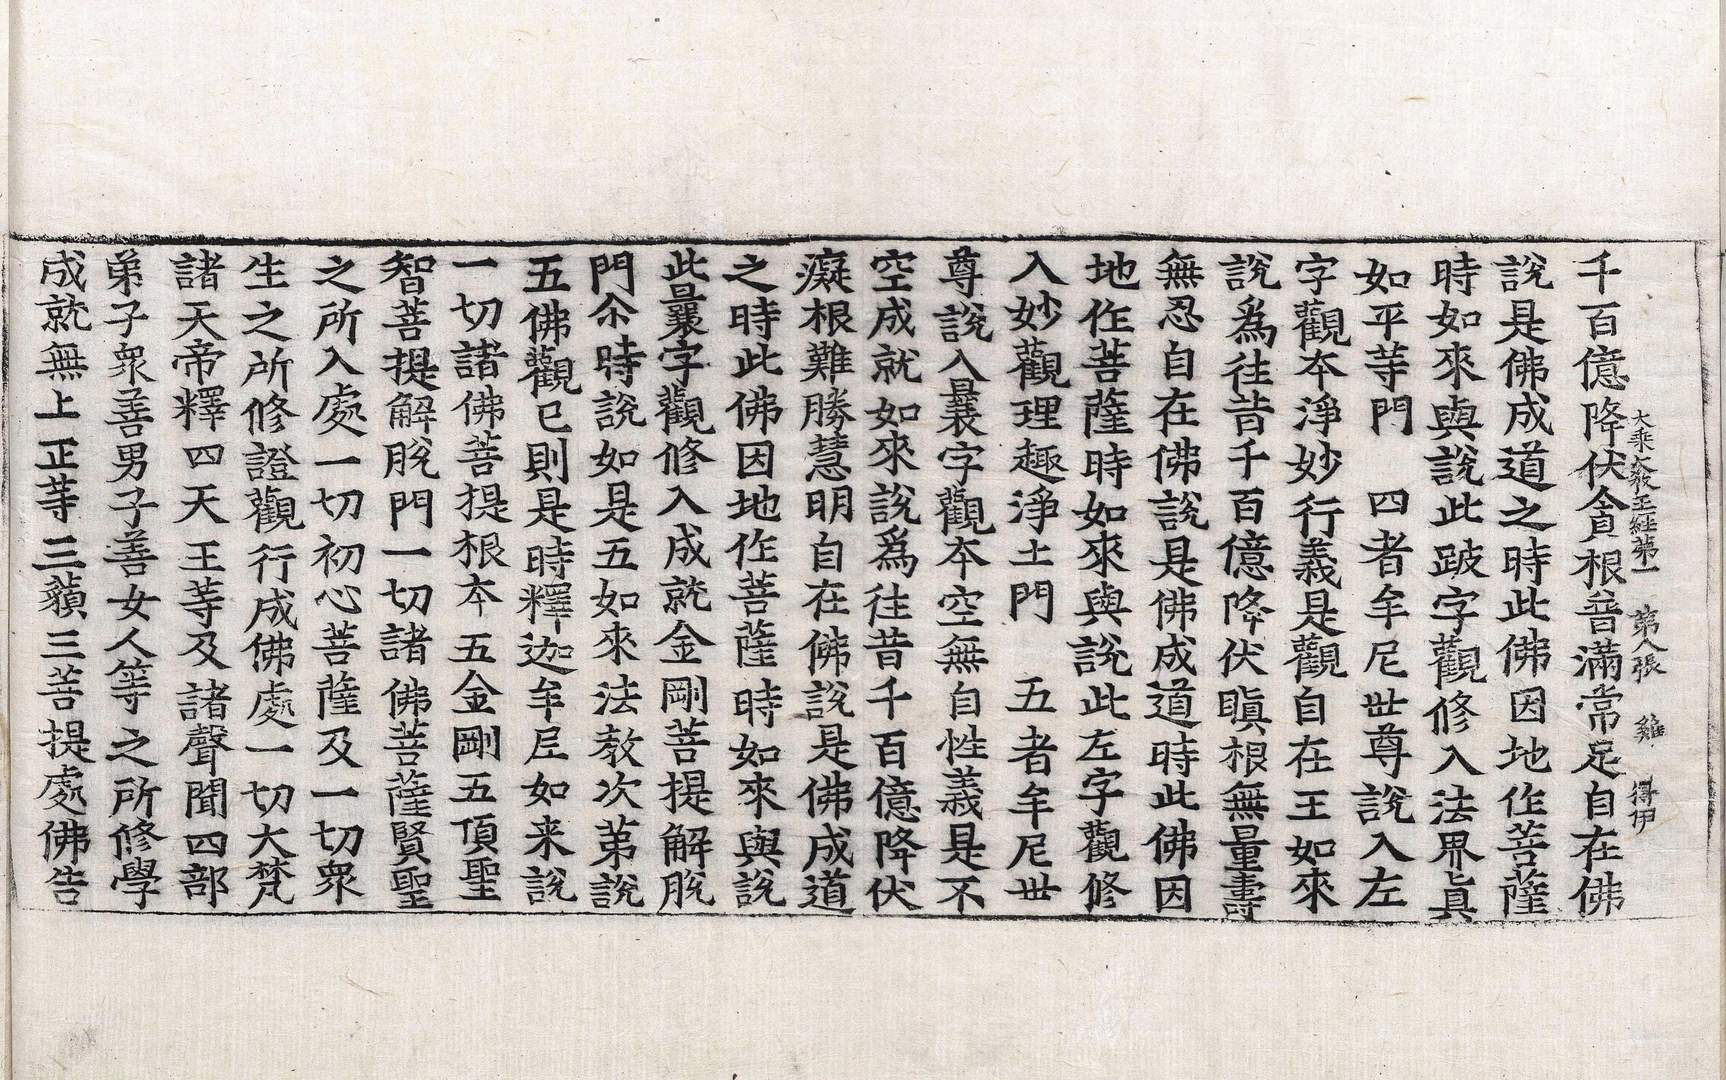 千百億降伏貪根普滿常足自在佛
大乘教王經第一　第八張　雞　得伊
說是佛成道之時此佛因地作菩薩
時如來與說此跛字觀修入法界真
如平等門　四者牟尼世尊說入左
字觀本淨妙行義是觀自在王如來
說爲往昔千百億降伏瞋根無量壽
無忍自在佛說是佛成道時此佛因
地作菩薩時如來與說此左字觀修
入妙觀理趣淨土門　五者牟尼世
尊說入曩字觀本空無自性義是不
空成就如來說爲往昔千百億降伏
癡根難勝慧明自在佛說是佛成道
之時此佛因地作菩薩時如來與說
此曩字觀修入成就金剛菩提解脫
門尒時說如是五如來法教次第說
五佛觀已則是時釋迦牟尼如来說
一切諸佛菩提根本五金剛五頂聖
智菩提解脫門一切諸佛菩薩賢聖
之所入處一切初心菩薩及一切眾
生之所修證觀行成佛處一切大梵
諸天帝釋四天王等及諸聲聞四部
弟子眾善男子善女人等之所修學
成就無上正等三藐三菩提處佛告